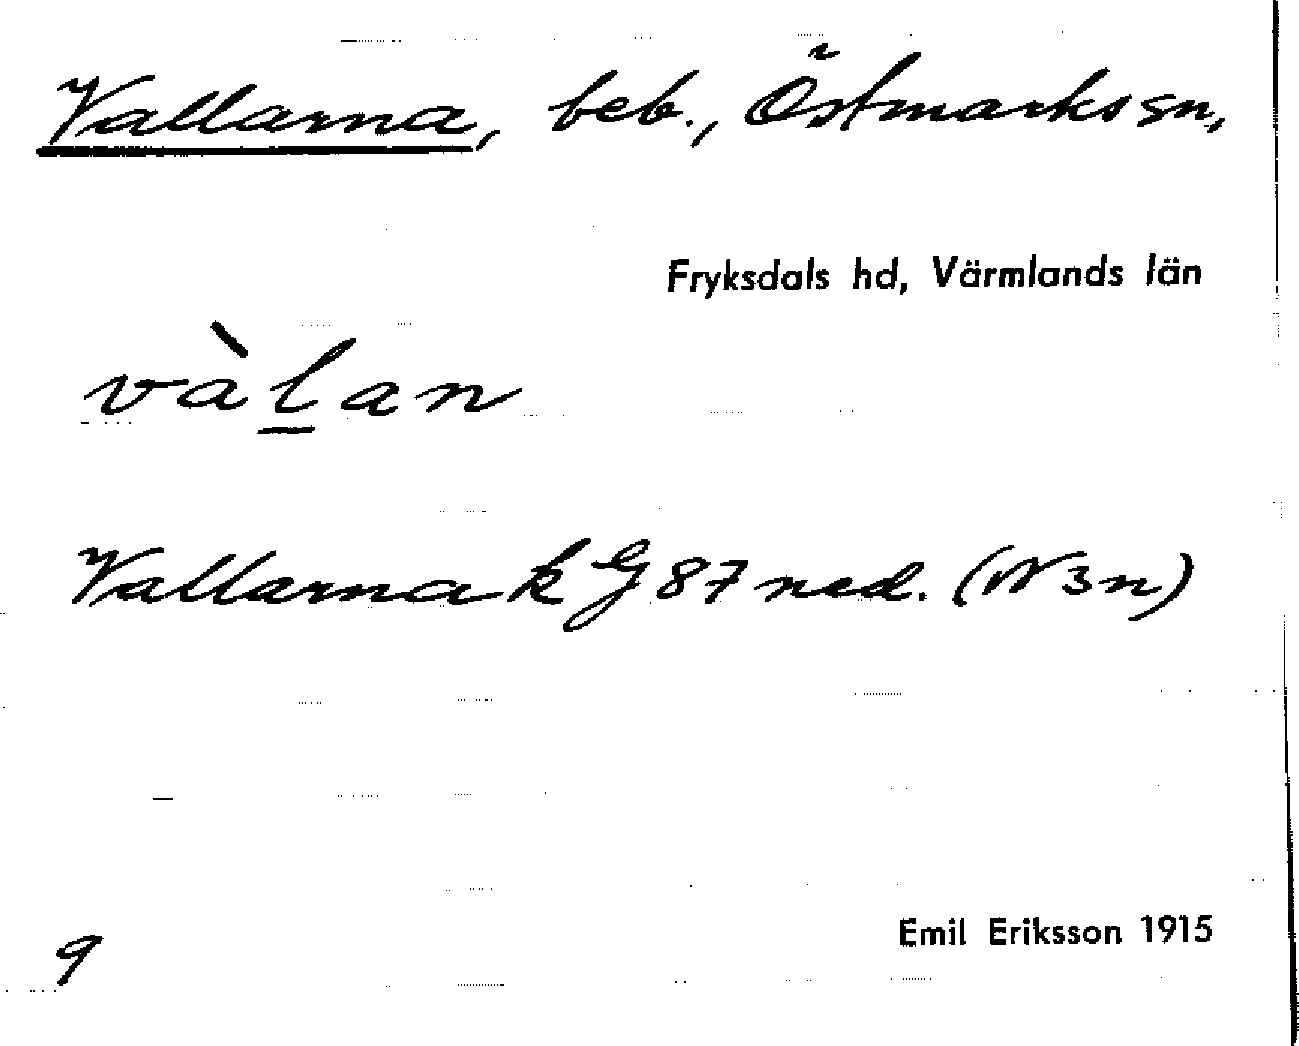 Vallarna, beb., Östmarks sn,
Fryksdals hd, Värmlands län
vàl̲an
Vallarna k G 87 ned. (N 3 n)
9
Emil Eriksson 1915